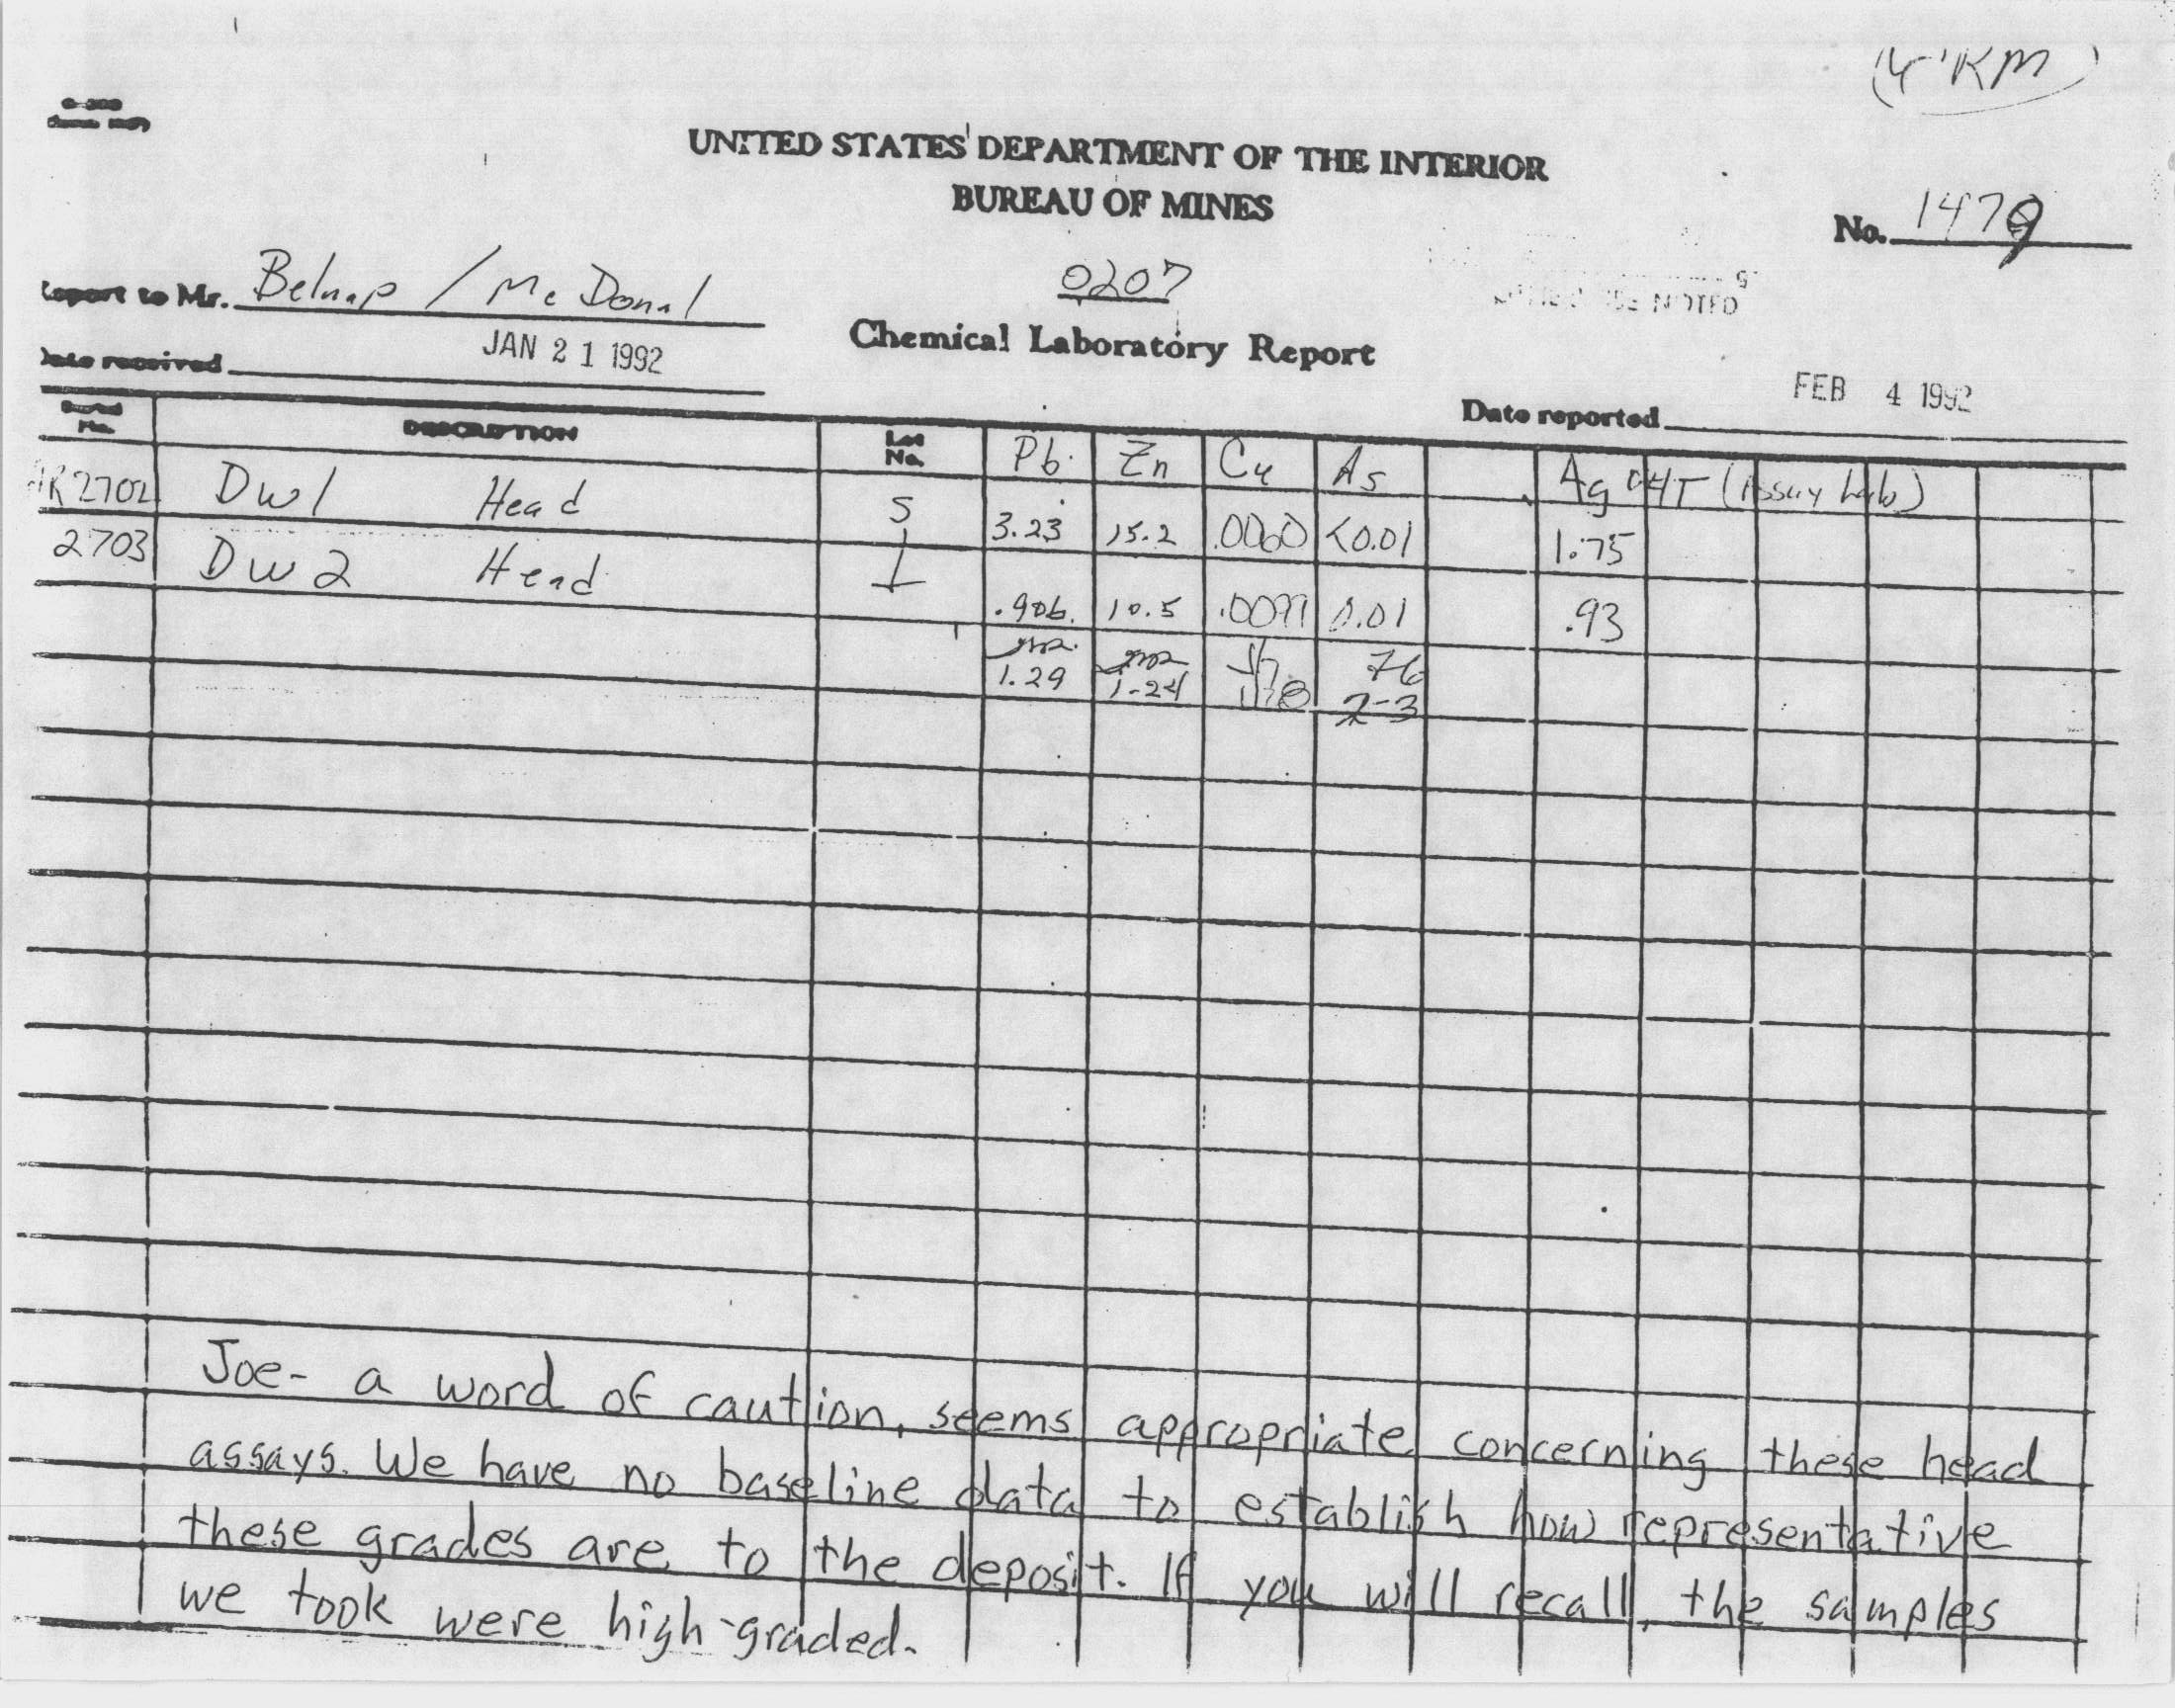 UNITED STATES DEPARTMENT OF THE INTERIOR
BUREAU OF MINES
No. 1479
Report to Mr. Belnap / McDonal
0207
NOTED
Date received JAN 21 1992
Chemical Laboratory Report
Date reported FEB 4 1992
No. DESCRIPTION Lot No. Pb Zn Cu As Ag (Assay Lab)
AR2702 DW1 Head S 3.23 15.2 .0060 <0.01 1.75
2703 DW2 Head .906 10.5 .0099 0.01 .93
76
1.29 1-24 2-3
Joe- a word of caution, seems appropriate concerning these head
assays. We have no baseline data to establish how representative
these grades are to the deposit. If you will recall, the samples
we took were high-graded.